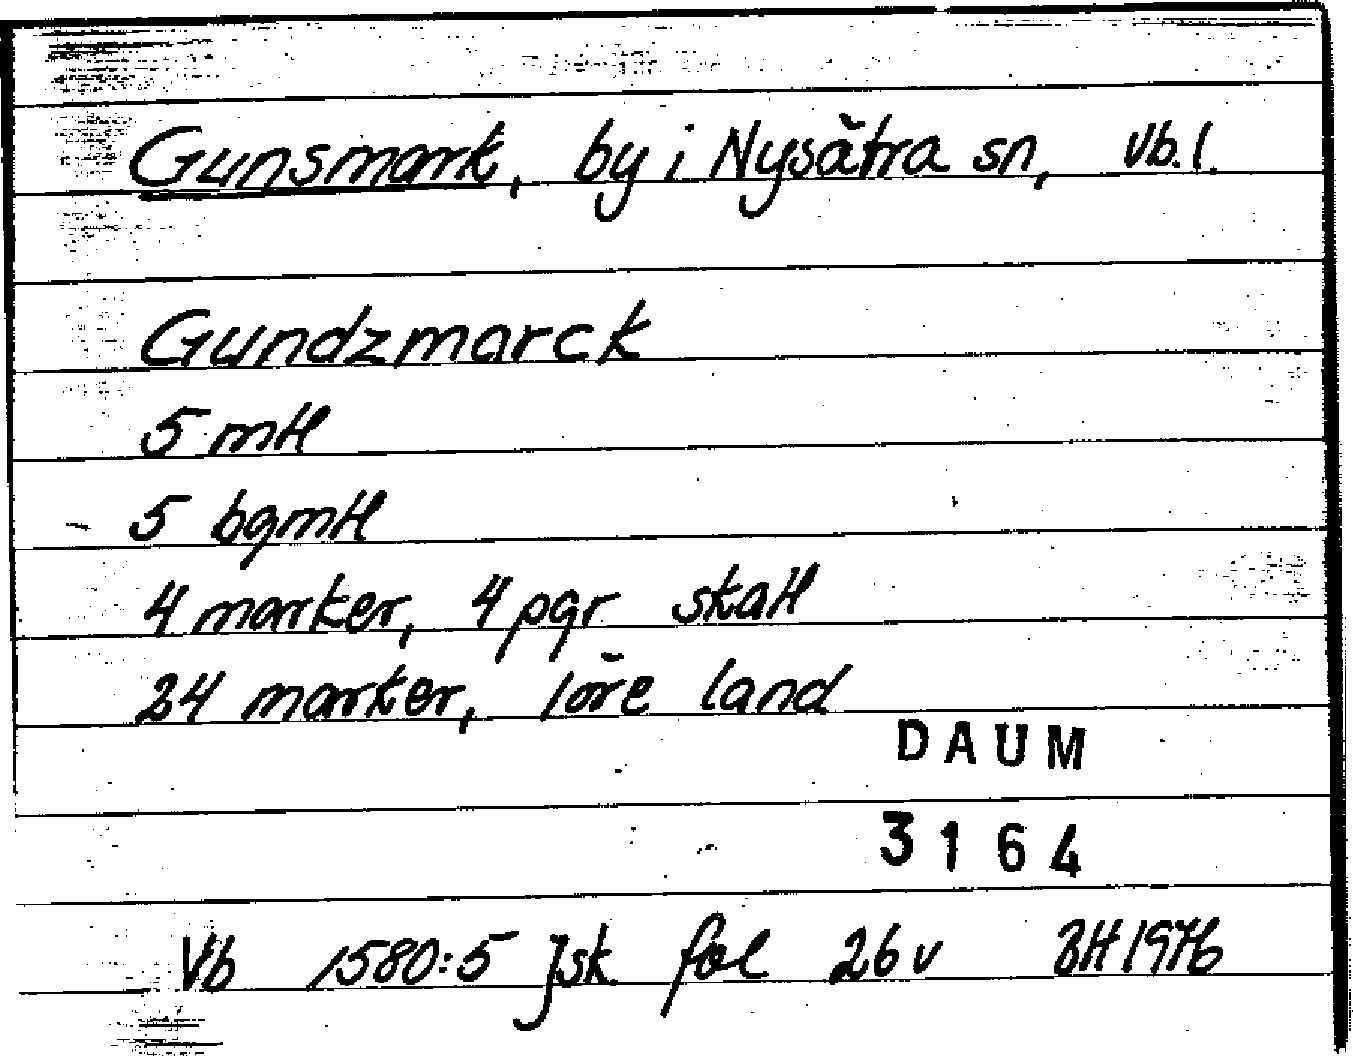 Gunsmark, by i Nysätra sn, Vb. l.
Gundzmarck
5 mtl
5 bgmtl
4 marker, 4 pgr skatt
24 marker, 1 öre land
DAUM
3164
Vb 1580:5 Jsk fol 26 v BH 1976